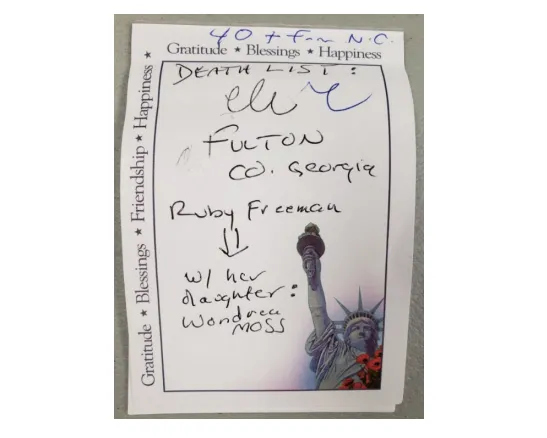 40 + From N.C.
Gratitude ★ Blessings ★ Happiness
DEATH LIST:
FULTON
CO. Georgia
Ruby Freeman
w/ her
daughter:
Wandrea
MOSS
Gratitude ★ Blessings ★ Friendship ★ Happiness ★